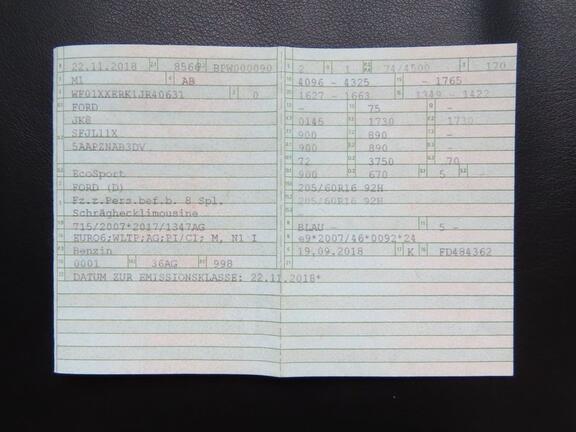 22.11.2018 8566 BPW000090
M1 AB
WF01XXERK1JR40631 0
FORD
JK8
SFJL11X
5AAPZNAB3DV
EcoSport
FORD (D)
Fz.z.Pers.bef.b. 8 Spl.
Schräghecklimousine
715/2007*2017/1347AG
EURO6;WLTP;AG;PI/CI; M, N1 I
Benzin
0001 36AG 998
DATUM ZUR EMISSIONSKLASSE: 22.11.2018*
2 1 74/4500 170
4096 - 4325 - 1765
1627 - 1663 1349 - 1422
- 75 -
0145 1730 1730
900 890 -
900 890 -
72 3750 70
900 670 5 -
205/60R16 92H
205/60R16 92H
-
BLAU - 5 -
e9*2007/46*0092*24
19.09.2018 K FD484362